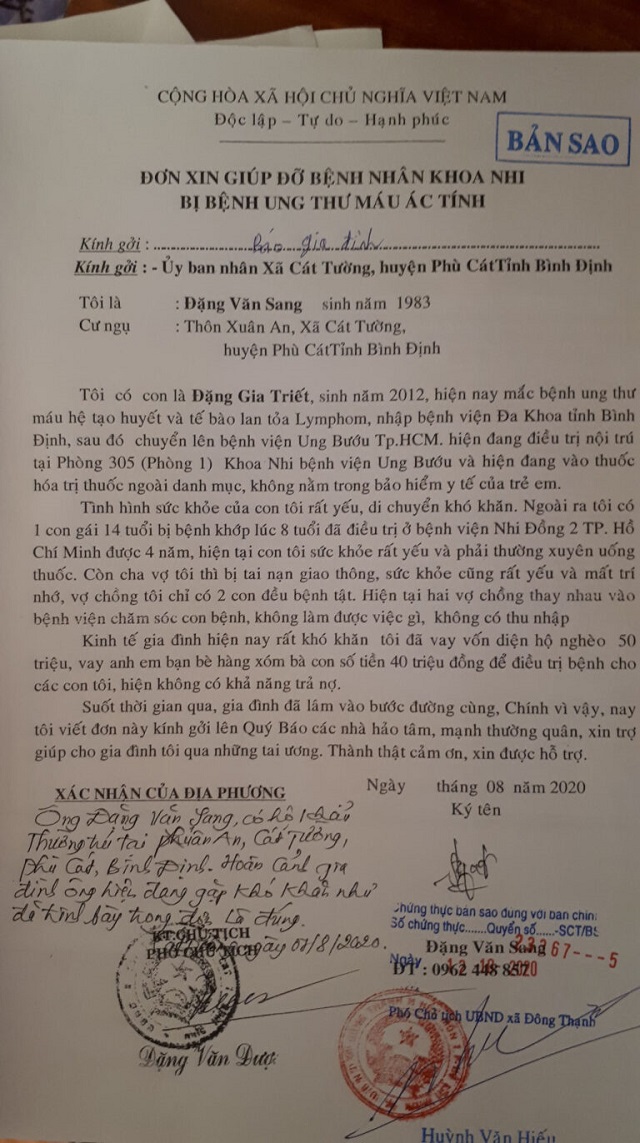 CỘNG HÒA XÃ HỘI CHỦ NGHĨA VIỆT NAM
Độc lập – Tự do – Hạnh phúc
BẢN SAO
ĐƠN XIN GIÚP ĐỠ BỆNH NHÂN KHOA NHI
BỊ BỆNH UNG THƯ MÁU ÁC TÍNH
Kính gởi : Báo gia đình
Kính gởi : - Ủy ban nhân Xã Cát Tường, huyện Phù CátTỉnh Bình Định
Tôi là : Đặng Văn Sang sinh năm 1983
Cư ngụ : Thôn Xuân An, Xã Cát Tường,
huyện Phù CátTỉnh Bình Định
Tôi có con là Đặng Gia Triết, sinh năm 2012, hiện nay mắc bệnh ung thư
máu hệ tạo huyết và tế bào lan tỏa Lymphom, nhập bệnh viện Đa Khoa tỉnh Bình
Định, sau đó chuyển lên bệnh viện Ung Bướu Tp.HCM. hiện đang điều trị nội trú
tại Phòng 305 (Phòng 1) Khoa Nhi bệnh viện Ung Bướu và hiện đang vào thuốc
hóa trị thuốc ngoài danh mục, không nằm trong bảo hiểm y tế của trẻ em.
Tình hình sức khỏe của con tôi rất yếu, di chuyển khó khăn. Ngoài ra tôi có
1 con gái 14 tuổi bị bệnh khớp lúc 8 tuổi đã điều trị ở bệnh viện Nhi Đồng 2 TP. Hồ
Chí Minh được 4 năm, hiện tại con tôi sức khỏe rất yếu và phải thường xuyên uống
thuốc. Còn cha vợ tôi thì bị tai nạn giao thông, sức khỏe cũng rất yếu và mất trí
nhớ, vợ chồng tôi chỉ có 2 con đều bệnh tật. Hiện tại hai vợ chồng thay nhau vào
bệnh viện chăm sóc con bệnh, không làm được việc gì, không có thu nhập
Kinh tế gia đình hiện nay rất khó khăn tôi đã vay vốn diện hộ nghèo 50
triệu, vay anh em bạn bè hàng xóm bà con số tiền 40 triệu đồng để điều trị bệnh cho
các con tôi, hiện không có khả năng trả nợ.
Suốt thời gian qua, gia đình đã lâm vào bước đường cùng, Chính vì vậy, nay
tôi viết đơn này kính gởi lên Quý Báo các nhà hảo tâm, mạnh thường quân, xin trợ
giúp cho gia đình tôi qua những tai ương. Thành thật cảm ơn, xin được hỗ trợ.
XÁC NHẬN CỦA ĐỊA PHƯƠNG
Ông Đặng Văn Sang, có hộ khẩu
Thường trú tại Xuân An, Cát Tường,
Phù Cát, Bình Định. Hoàn cảnh gia
đình ông hiện đang gặp khó khăn như
đã trình bày trong đơn là đúng.
ngày 07/8/2020.
KT.CHỦ TỊCH
PHÓ CHỦ TỊCH
Đặng Văn Dượ
Ngày tháng 08 năm 2020
Ký tên
Chứng thực bản sao đúng với bản chín
Số chứng thực.......Quyển số......-SCT/BS
Đặng Văn Sang
ĐT : 0962 448 857
Phó Chủ tịch UBND xã Đông Thạnh
Huỳnh Văn Hiếu